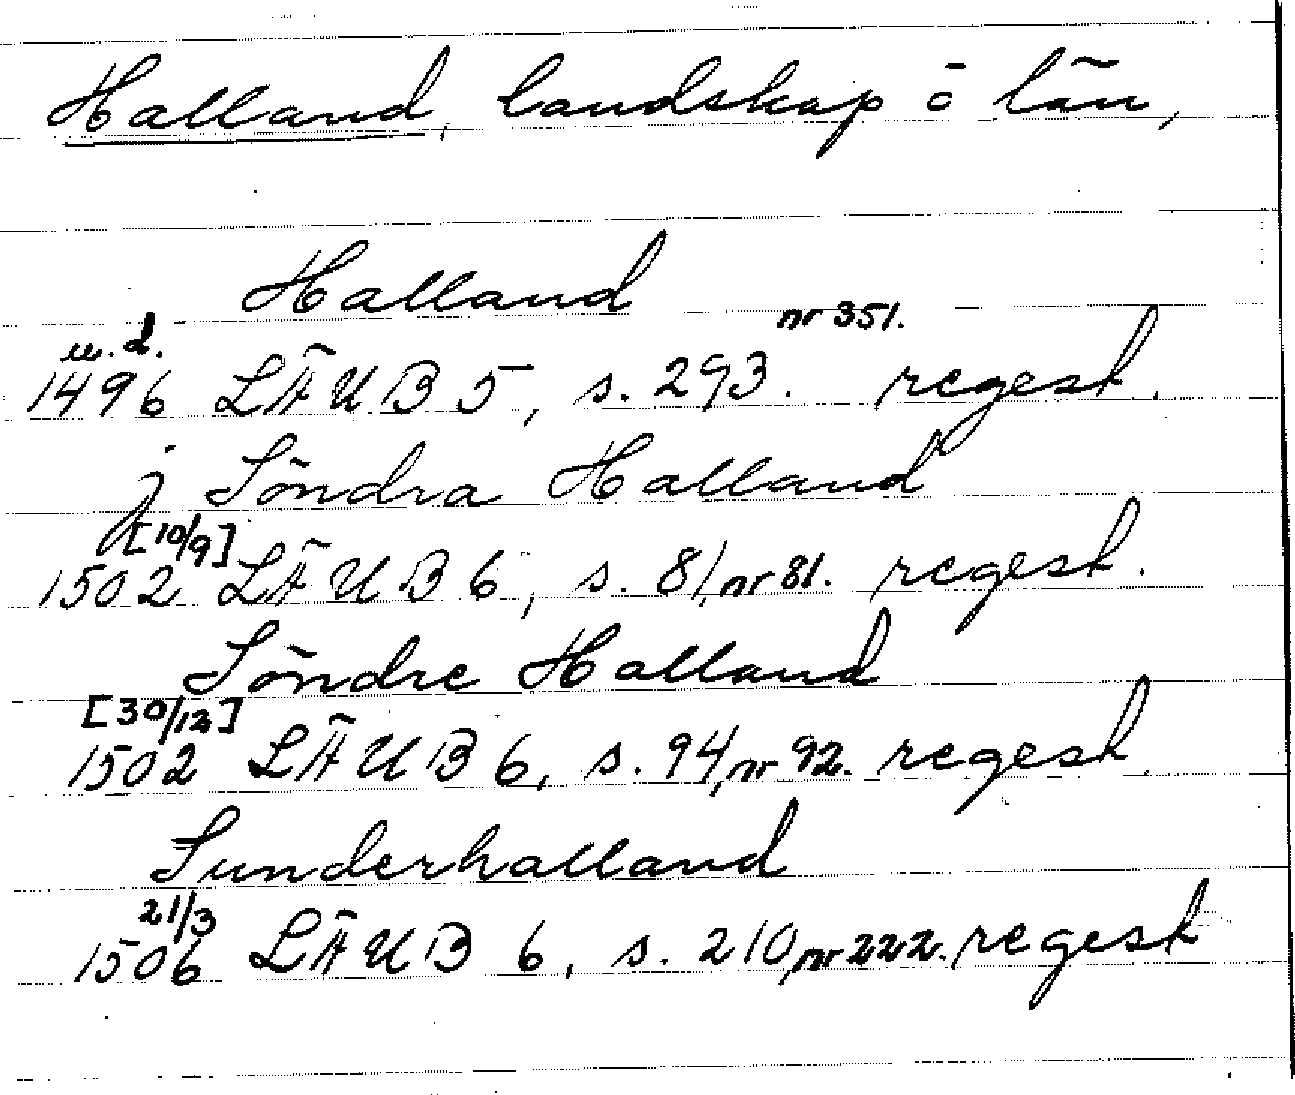 Halland, landskap o län,
Halland
u. d. nr 351.
1496 LÄUB 5, s. 293. regest.
j Söndra Halland
[10/9]
1502 LÄUB 6, s. 81, nr 81. regest.
Söndre Halland
[30/12]
1502 LÄUB 6, s. 94, nr 92. regest.
Sunderhalland
21/3
1506 LÄUB 6, s. 210, nr 222. regest